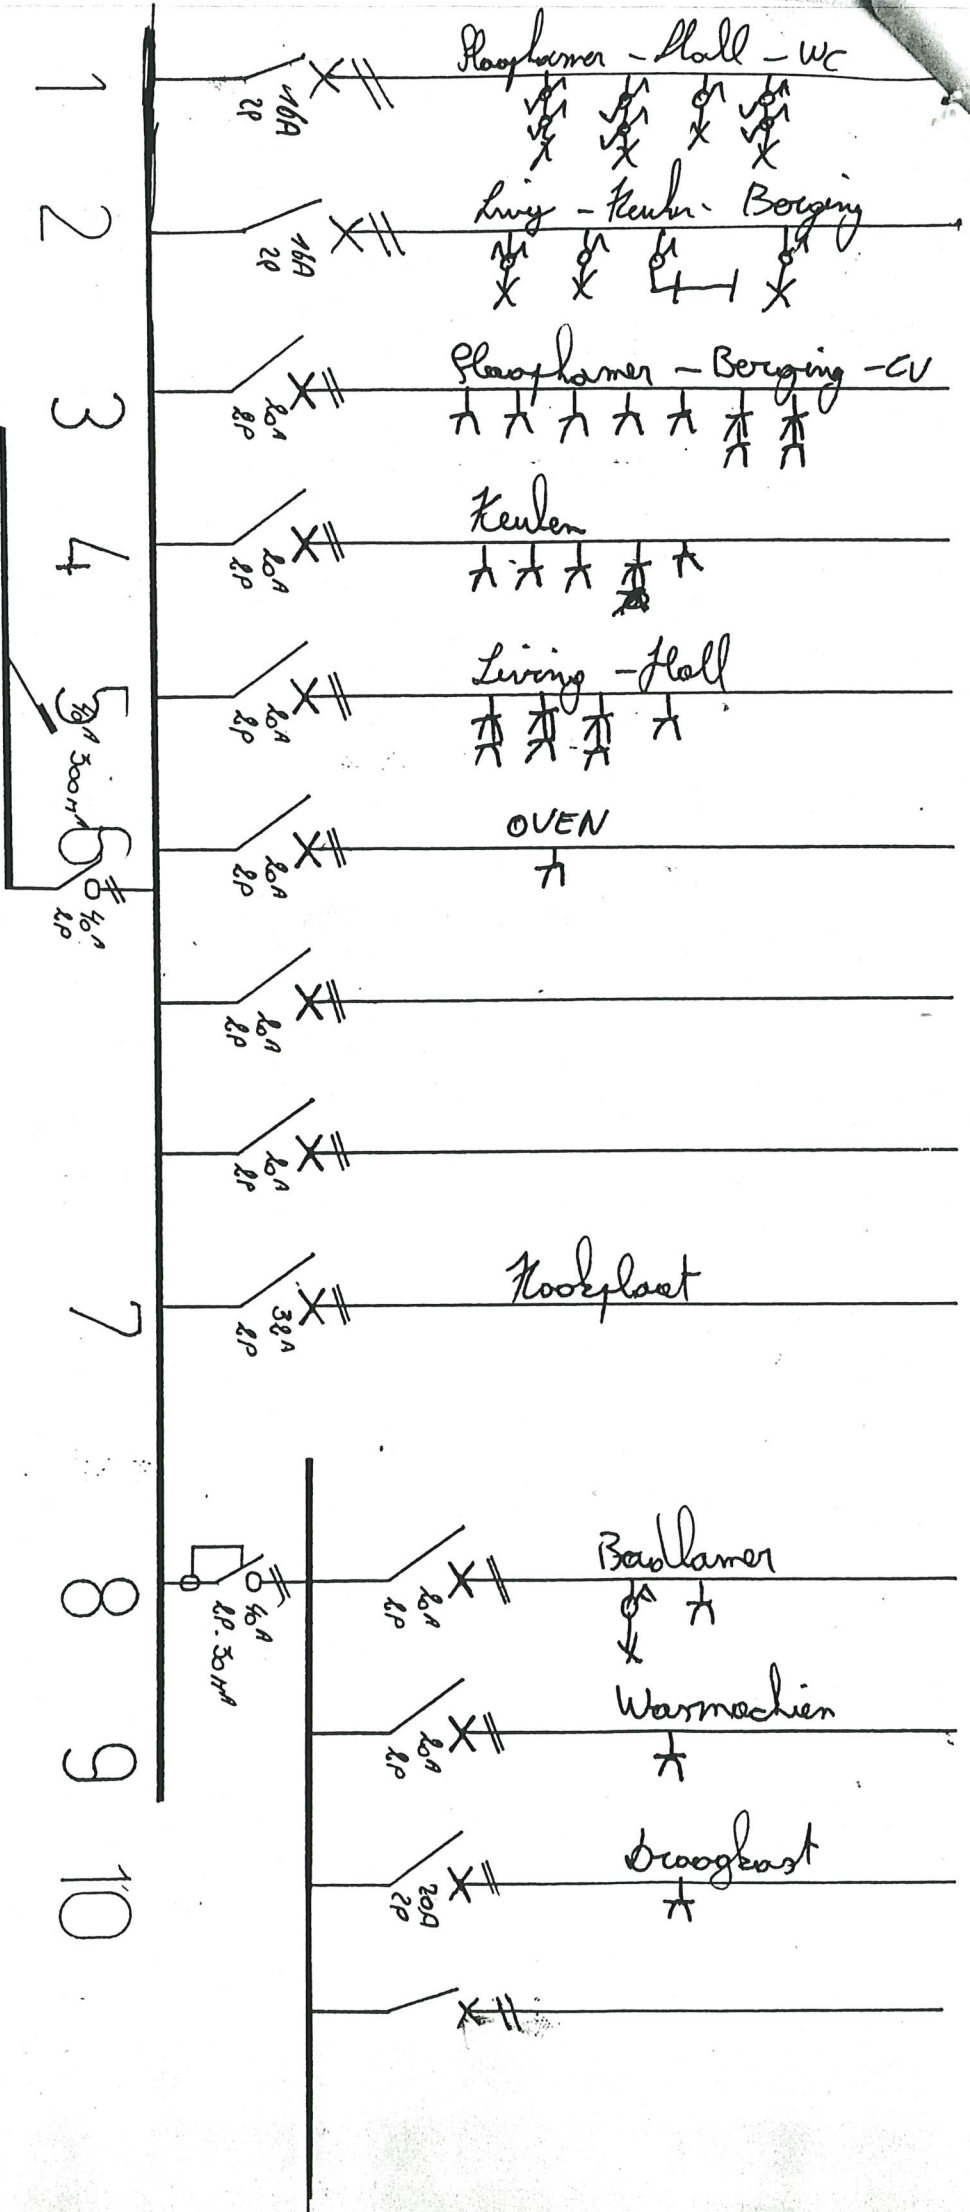 1
16A
2P
Slaapkamer - Hall - WC
2
16A
2P
Living - Keuken - Berging
3
20A
2P
Slaapkamer - Berging - CV
4
20A
2P
Keuken
5
20A
2P
Living - Hall
40A 300mA
6
20A
2P
OVEN
40A
2P
20A
2P
20A
2P
7
32A
2P
Kookplaat
8
40A
2P. 30mA
20A
2P
Badkamer
9
20A
2P
Wasmachien
10
20A
2P
Droogkast